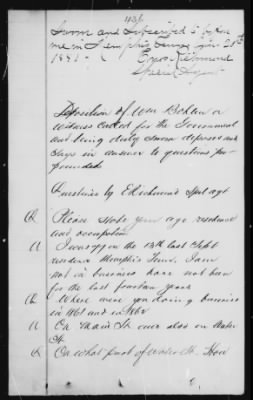 Sworn and Subscribed to before
me in Memphis
Special Agent
Deposition of Wm
witness called for the Government
and being duly sworn deposes and
says in answer to questions pro
pounded
Questions by E Richmond Spl agt
Q Please state your age residence
and occupation
A I was 77 on the 13th last Sept
reside in Memphis Tenn. I am
not in business have not been
for the last fourteen years
Q Where were you doing business
in 1861 and in 1862
A On Main St. over also on Water
St.
Q On what part of Water St. How